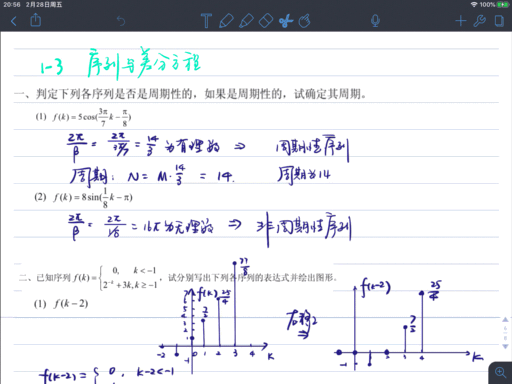 20:56 2月28日周五
100%
1-3 序列与差分方程
一、判定下列各序列是否是周期性的，如果是周期性的，试确定其周期。
(1) f(k)=5cos(3π/7 k - π/8)
2π/β = 2π/(3π/7) = 14/3 为有理数 ⇒ 周期性序列
周期：N = M·14/3 = 14. 周期为14
(2) f(k)=8sin(1/8 k-π)
2π/β = 2π/(1/8) = 16π为无理数 ⇒ 非周期性序列
二、已知序列 f(k)={0, k<-1
2^-k+3k, k≥-1
，试分别写出下列各序列的表达式并绘出图形。
(1) f(k-2)
f(k) 7/2 25/4
-2 0 1 2 3 4 k
右移2 ⇒
f(k-2) 7/2 25/4
k
f(k-2)={ 0, k-2<-1